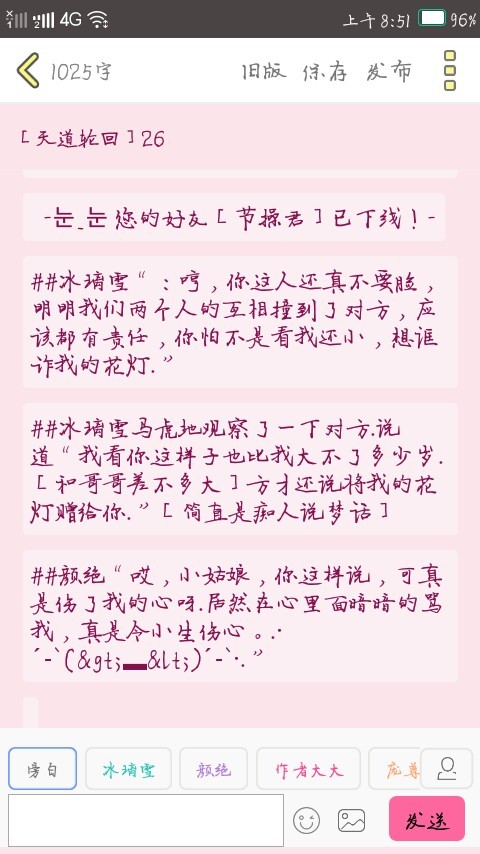 4G 上午 8:51 96%
1025字 旧版 保存 发布
[天道轮回]26
-눈_눈 您的好友[节操君]已下线!-
##冰璃雪“:哼,你这人还真不要脸,
明明我们两个人的互相撞到了对方,应
该都有责任,你怕不是看我还小,想诓
诈我的花灯.”
##冰璃雪马虎地观察了一下对方.说
道“我看你这样子也比我大不了多少岁.
[和哥哥差不多大]方才还说将我的花
灯赠给你.”[简直是痴人说梦话]
##颜绝“哎,小姑娘,你这样说,可真
是伤了我的心呀.居然在心里面暗暗的骂
我,真是令小生伤心。.·
´-`(&gt;▂&lt;)´-`·.”
旁白 冰璃雪 颜绝 作者大大 庞尊
发送